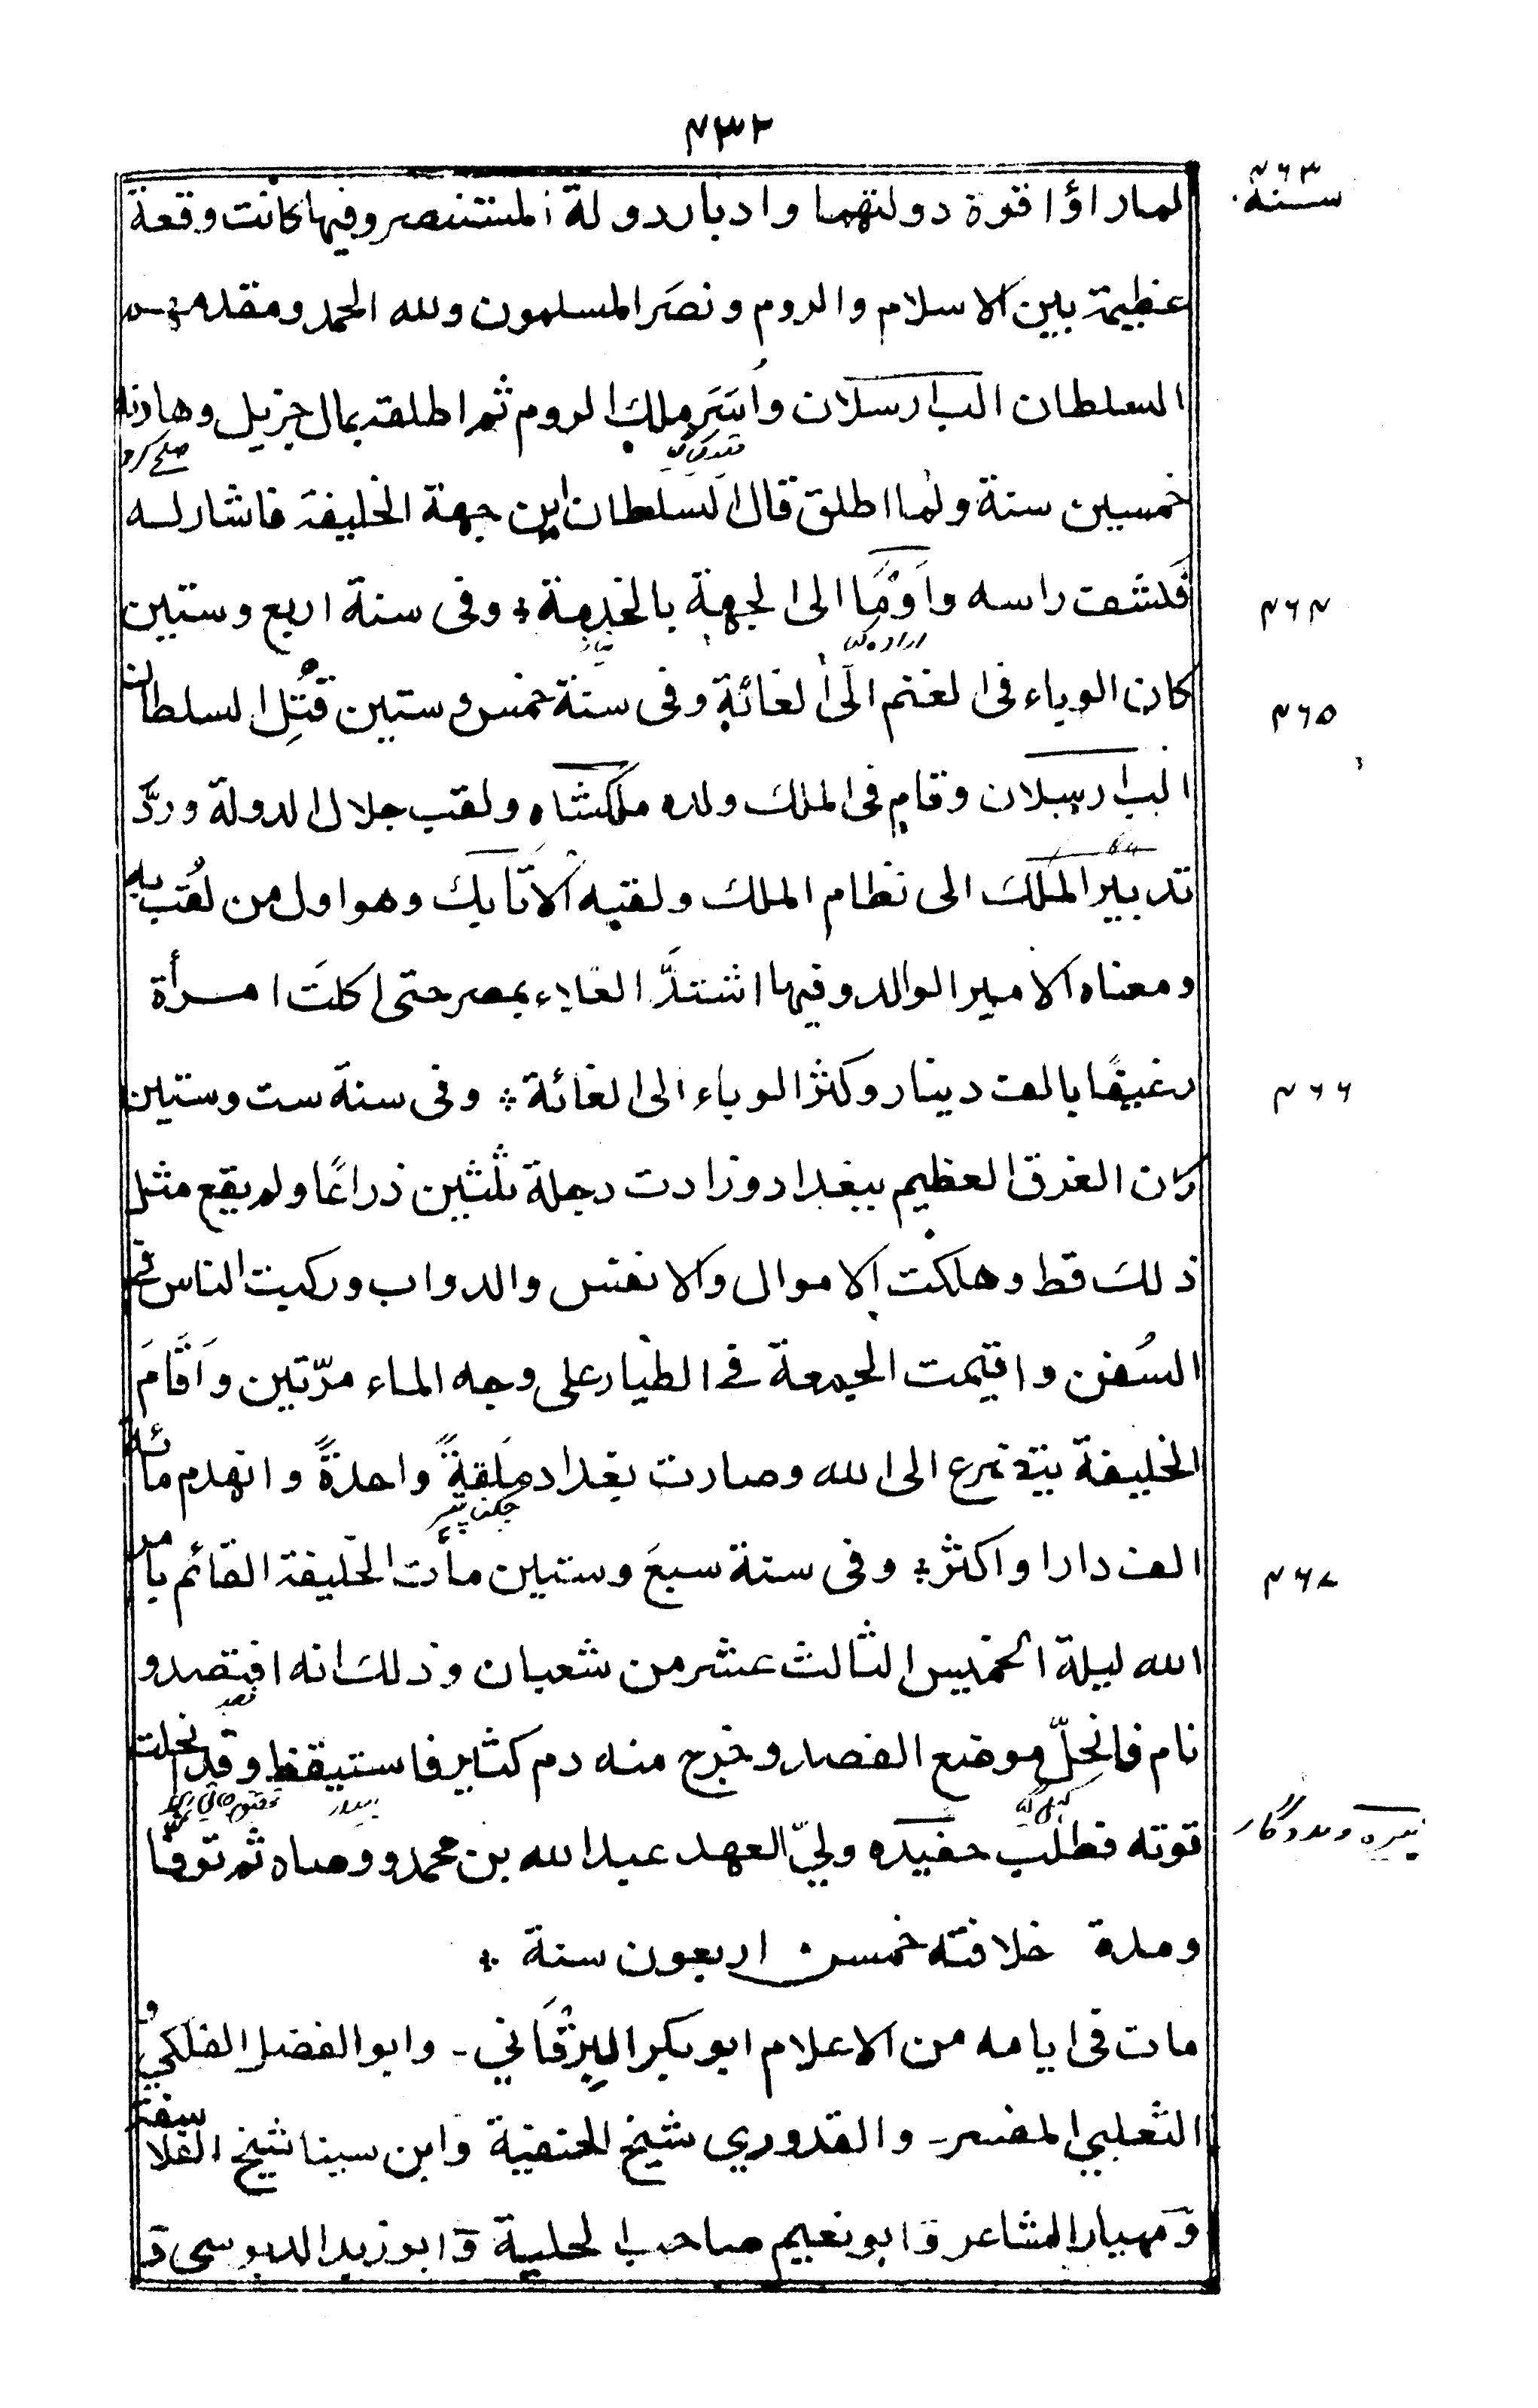 ۴۳۲
سنة ۴۶۳
لما راؤا قوة دولتهما وادبار دولة المستنصر وفيها كانت وقعة
عظيمة بين الاسلام والروم ونصر المسلمون ولله الحمد ومقدمهم
السلطان الب ارسلان وأُسِرَ ملك الروم ثم اطلقه بمال جزيل وهادنه
صلح كرد
خمسين سنة ولما اطلق قال السلطان اين جهة الخليفة فاشار له
فكشف راسه واَوْمَا الى الجهة بالخدمة ؞ وفى سنة اربع وستين
۴۶۴
كان الوباء فى الغنم الى الغائة وفى سنة خمس وستين قُتِل السلطان
۴۶۵
الب ارسلان وقام فى الملك ولده ملكشاه ولقب جلال الدولة وردَّ
تدبير الملك الى نظام الملك ولقبه الاتابك وهو اول من لُقب به
ومعناه الامير الوالد وفيها اشتدَّ الغلاء بمصر حتى اكلَت امرأة
رغيفًا بالف دينار وكثر الوباء الى الغائة ؞ وفى سنة ست وستين
۴۶۶
كان الغرق العظيم ببغداد وزادت دجلة ثلثين ذراعًا ولم يقع مثل
ذلك قط وهلكت الاموال والانفس والدواب وركبت الناس فى
السُفن واقيمت الجمعة فى الطيار على وجه الماء مرّتين وَاَقَامَ
الخليفة يتضرع الى الله وصارت بغداد مَلَقةً واحدةً وانهدم مائة
الف دارا واكثر ؞ وفى سنة سبع وستين مات الخليفة القائم بامر
۴۶۷
الله ليلة الخميس الثالث عشر من شعبان وذلك انه افتصد و
نام فانحلّ موضع الفصد وخرج منه دم كثير فاستيقظ وقد انحلت
قوته فطلب حفيده وليّ العهد عبد الله بن محمد ووصاه ثم توفا
نبيره ومددگار
ومدة خلافته خمس اربعون سنة ؞
مات فى ايامه من الاعلام ابو بكر البرْقَاني - وابو الفضل الفلكي و
الثعلبي المفسر - والقدوري شيخ الحنفية وابن سينا شيخ الفلاسفة
ومهيار الشاعر وابو نعيم صاحب الحلية وابو زيد الدبوسى و